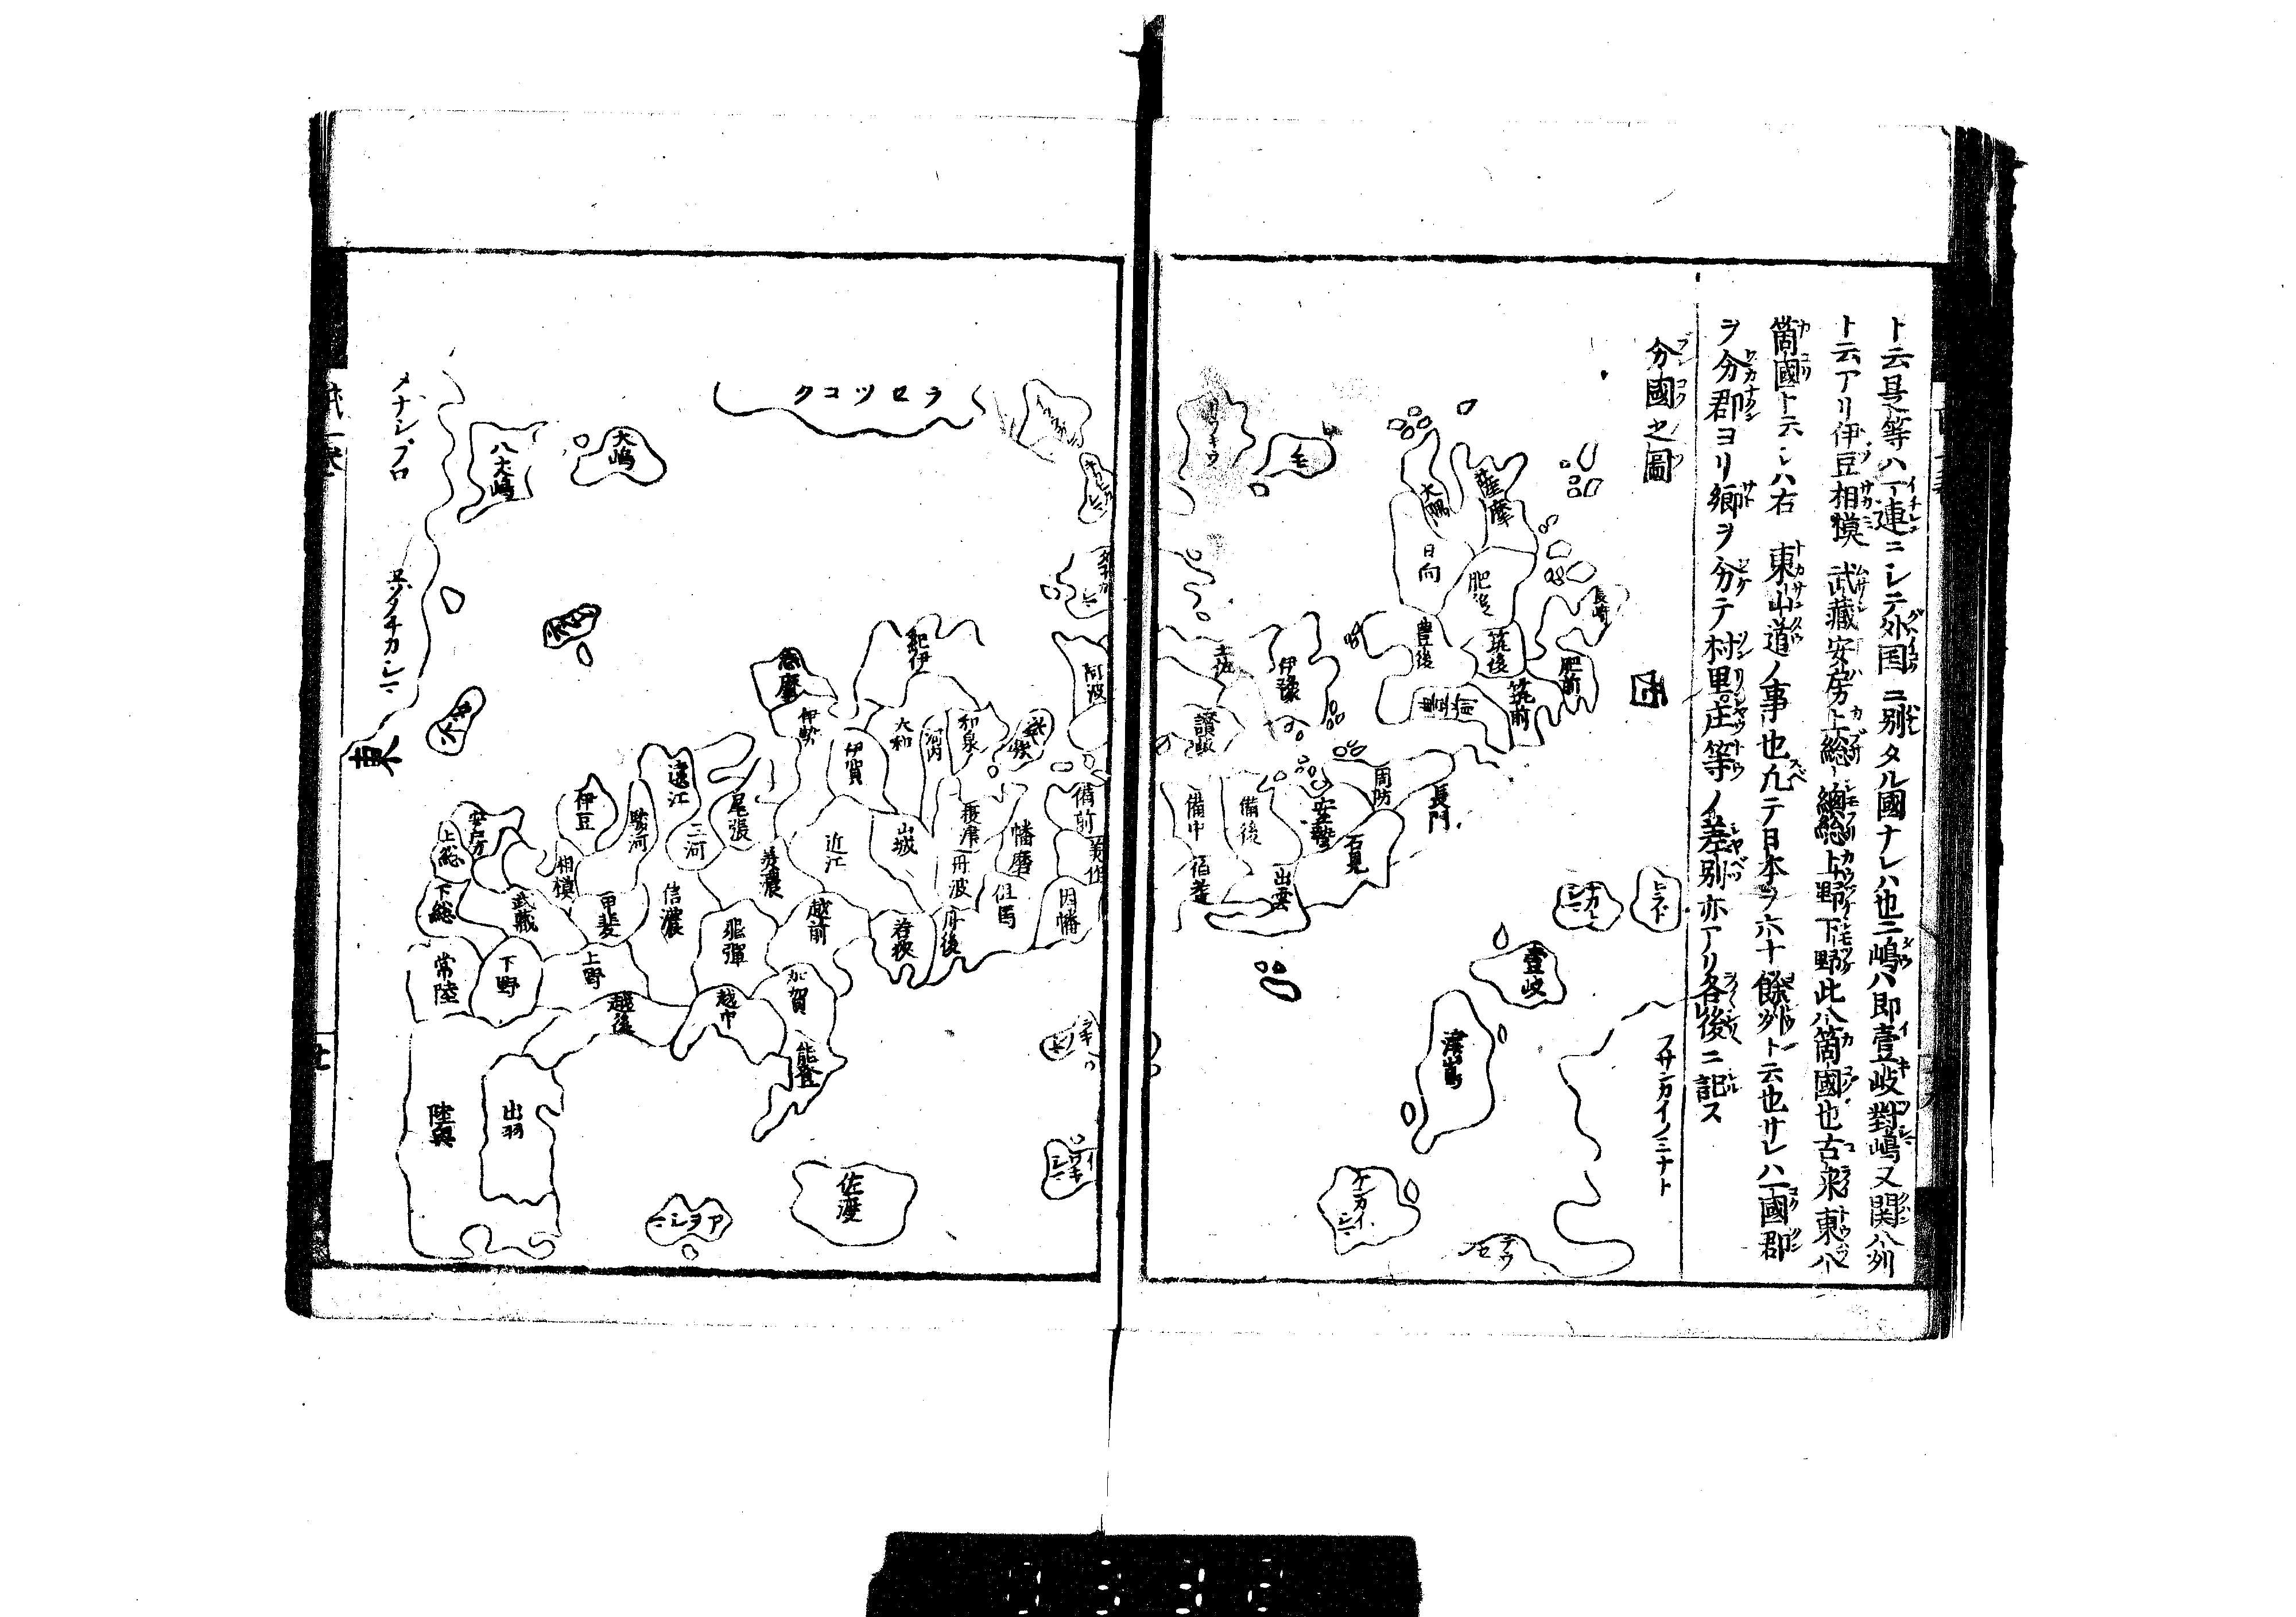 ト云具等ハ一連ニシテ外国ニ別タル國ナレハ也二嶋ハ即壹岐對嶋又関八列
ト云アリ伊豆相摸武藏安房上総下総上野下野此八箇國也古来東八
箇國ト云シハ右東山道ノ事也凡テ日本ヲ六十餘列ト云也サレハ一國郡
ヲ分郡ヨリ郷ヲ分テ村里庄等ノ差別亦アリ各後ニ記ス
分國之圖
フサンカイノミナト
西
薩摩
大隅
日向
肥後
長崎
豊後
筑後
肥前
筑前
リウキウ
土佐
伊豫
讃岐
周防
長門
備中
備後
安藝
石見
出雲
ヒラド
壹岐
ラセツコク
大嶋
八丈嶋
メナシブロ
東
紀伊
志摩
伊勢
阿波
大和
河内
和泉
淡路
伊賀
遠江
伊豆
駿河
三河
尾張
美濃
近江
山城
攝津
丹波
幡磨
備前
美作
安房
上総
下総
相模
武藏
甲斐
信濃
飛彈
越前
若狹
丹後
但馬
因幡
常陸
下野
上野
越後
越中
加賀
能登
陸奥
出羽
佐渡